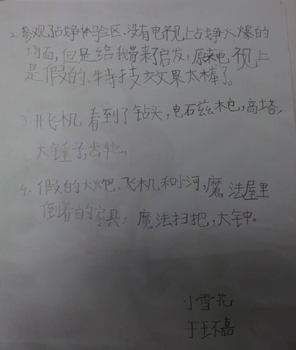 2.参观了占争体验区,没有电视上占争火爆的
场面,但是给我带来了启发,原来电视上
是假的、特技效果太棒了。
3.飞机看到了钻头,电石兹木包,高塔,
大锤子
4.假的大火包,飞机和小河,魔法屋里
倒着的家具,魔法扫把,大钟。
小雪花